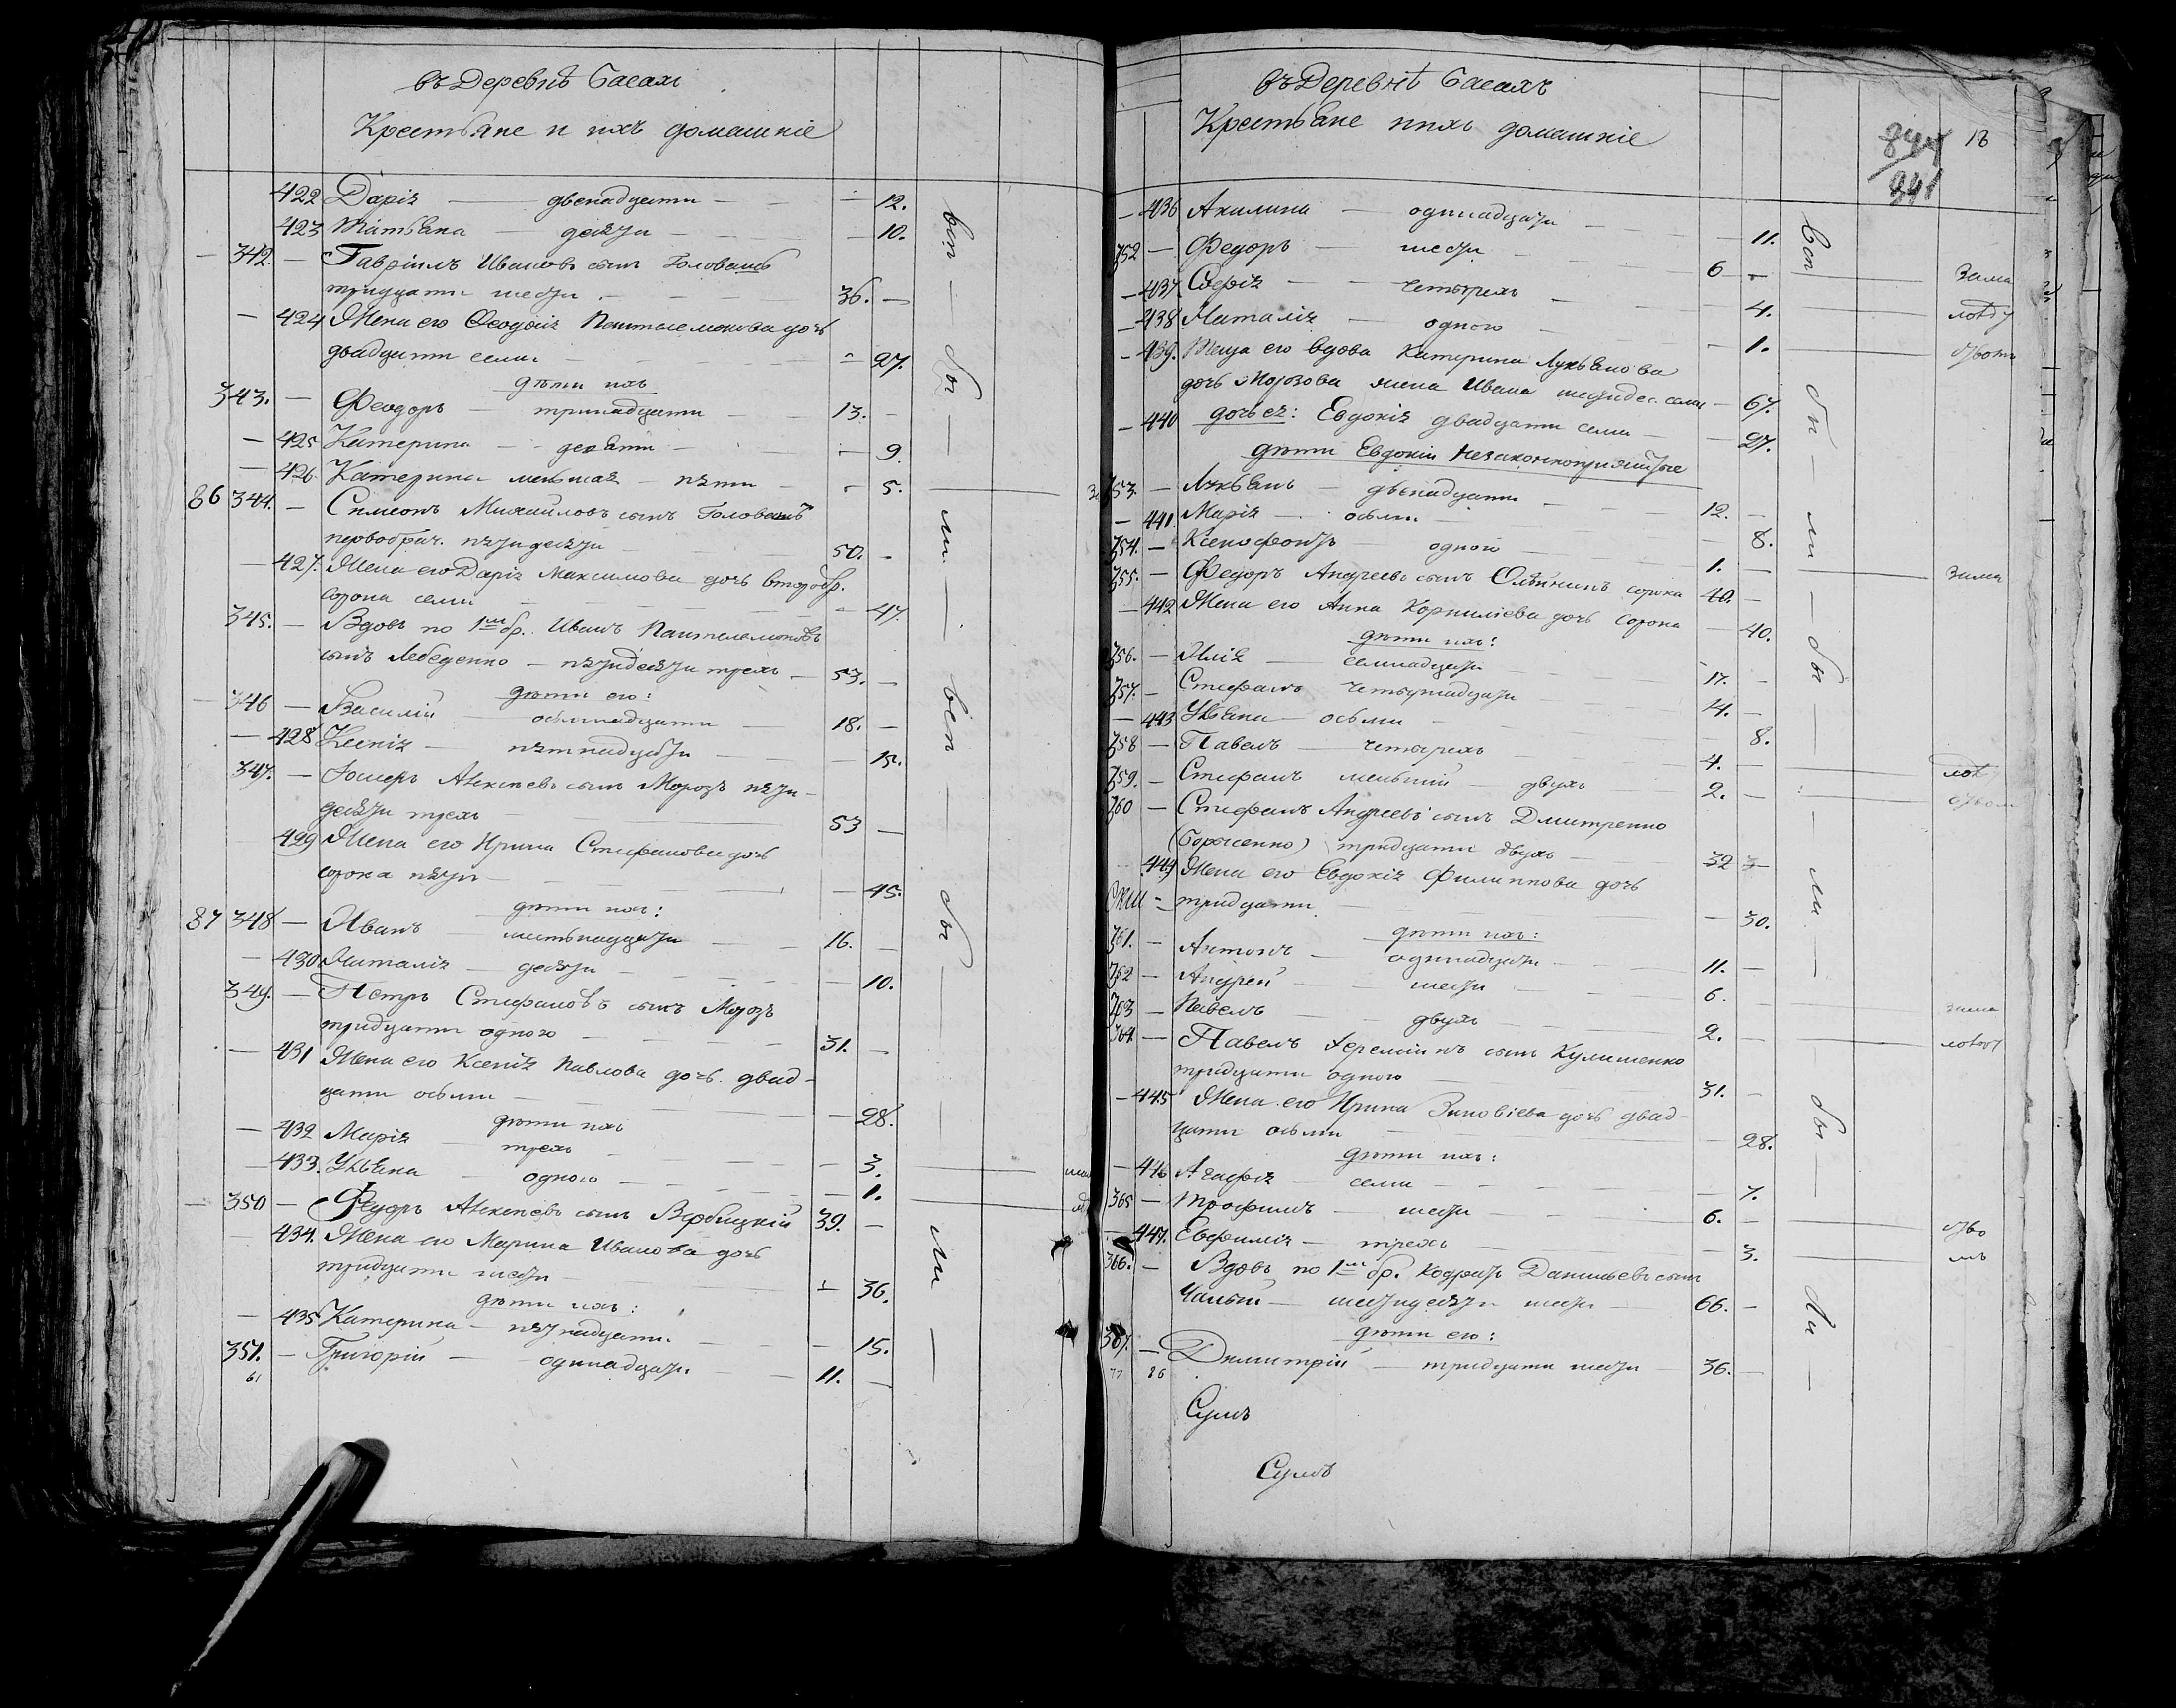 въ Деревнѣ Басахъ
Крестьяне и ихъ домашніе
422 Дарія — двенадцати — 12.
423 Татьяна — десяти — 10.
342. — Гавріилъ Ивановъ сынъ Головань
тридцати шести — 36. —
— 424 Жена его Феодосія Пантелемонова дочь
двадцати семи — 27.
дѣти ихъ
343. — Феодоръ — тринадцати — 13. —
— 425 Катерина — девяти — 9.
— 426. Катерина меньшая — пяти — 5.
86 344. — Симеонъ Михайловъ сынъ Головань
первобрач. пятидесяти 50. —
— 427. Жена его Дарія Максимова дочь второбр.
сорока семи — 47.
345. — Вдовъ по 1м бр. Иванъ Пантелемоновъ
сынъ Лебеденко — пятидесяти трехъ — 53. —
дѣти его:
346 — Василій осьмнадцати — 18. —
— 428 Ксенія — пятнадцати — 15.
347. — Алексѣевъ сынъ Морозъ пяти-
десяти трехъ 53 —
429 Жена его Ирина Стефанова дочь
сорока пяти — 45.
дѣти ихъ:
87 348 — Иванъ шестьнадцати — 16. —
— 430 Наталія — десяти — 10.
349. — Петръ Стефановъ сынъ Морозъ
тридцати одного — 31. —
— 431 Жена его Ксенія Павлова дочь двад-
цати осьми — 28.
дѣти ихъ
— 432 Марія трехъ — 3.
— 433. Ульяна — одного — 1.
— 350 — Феодръ Алексѣевъ сынъ Вербицкій 39. —
434. Жена его Марина Иванова дочь
тридцати шести — 36.
дѣти ихъ:
— 435 Катерина — пятнадцати — 15.
351. — Григорій — одинадцати — 11. —
61
всѣ — бы — ли — всѣ — бы — ли —
въ Деревнѣ Басахъ
Крестьяне и ихъ домашніе
844
841
18
— 436 Акилина — одинадцати — 11.
352 — Федоръ — шести — 6 —
— 437. Софія — четырехъ — 4.
— 438 Наталія — одного — 1.
— 439. Теща его вдова Катерина Лукьянова
дочь Морозова жена Ивана шестидес. семи — 67.
— 440 дочь ея: Евдокія двадцати семи — 27.
дѣти Евдокіи незаконноприжитые
353. — Лукьянъ — двенадцати — 12. —
— 441. Марія — осьми — 8.
354. — Ксенофонтъ — одного 1. —
355. — Федоръ Андреевъ сынъ Олѣйникъ сорока 40. —
— 442 Жена его Анна Корниліева дочь сорока — 40.
дѣти ихъ:
356. — Илія — семнадцати 17. —
357. — Стефанъ четырнадцати 14. —
— 443 Ульяна — осьми — 8.
358 — Павелъ — четырехъ 4. —
359. — Стефанъ меньшій — двухъ 2. —
360 — Стефанъ Андреевъ сынъ Дмитренко
(Борисенко) тридцати двухъ 32 —
— 444 Жена его Евдокія Филиппова дочь
тридцати — 30.
дѣти ихъ:
361. — Антонъ — одинадцати — 11. —
362 — Андрей — шести — 6. —
363 — Павелъ — двухъ — 2. —
364. — Павелъ Іереміинъ сынъ Кулишенко
тридцати одного — 31. —
— 445 Жена его Ирина Зиновіева дочь двад-
цати осьми — 28.
дѣти ихъ:
— 446 Агафія — семи — 7.
365 — Трофимъ — шести — 6. —
— 447. Евфимія — трехъ — 3.
366. — Вдовъ по 1м бр. Кодратъ Данильевъ сынъ
Чалый — шестидесяти шести — 66. —
дѣти его:
367. — Дмитрій — тридцати шести — 36. —
77 86
всѣ — бы — ли — бы — ли — бы — ли —